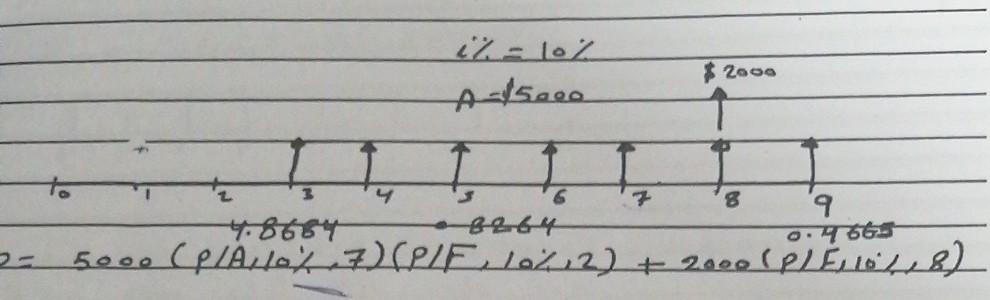 i% = 10%
$ 2000
A = $5000
0 1 2 3 4 5 6 7 8 9
4.8684 0.8264 0.4665
P = 5000 (P/A, 10%, 7)(P/F, 10%, 2) + 2000 (P/F, 10%, 8)